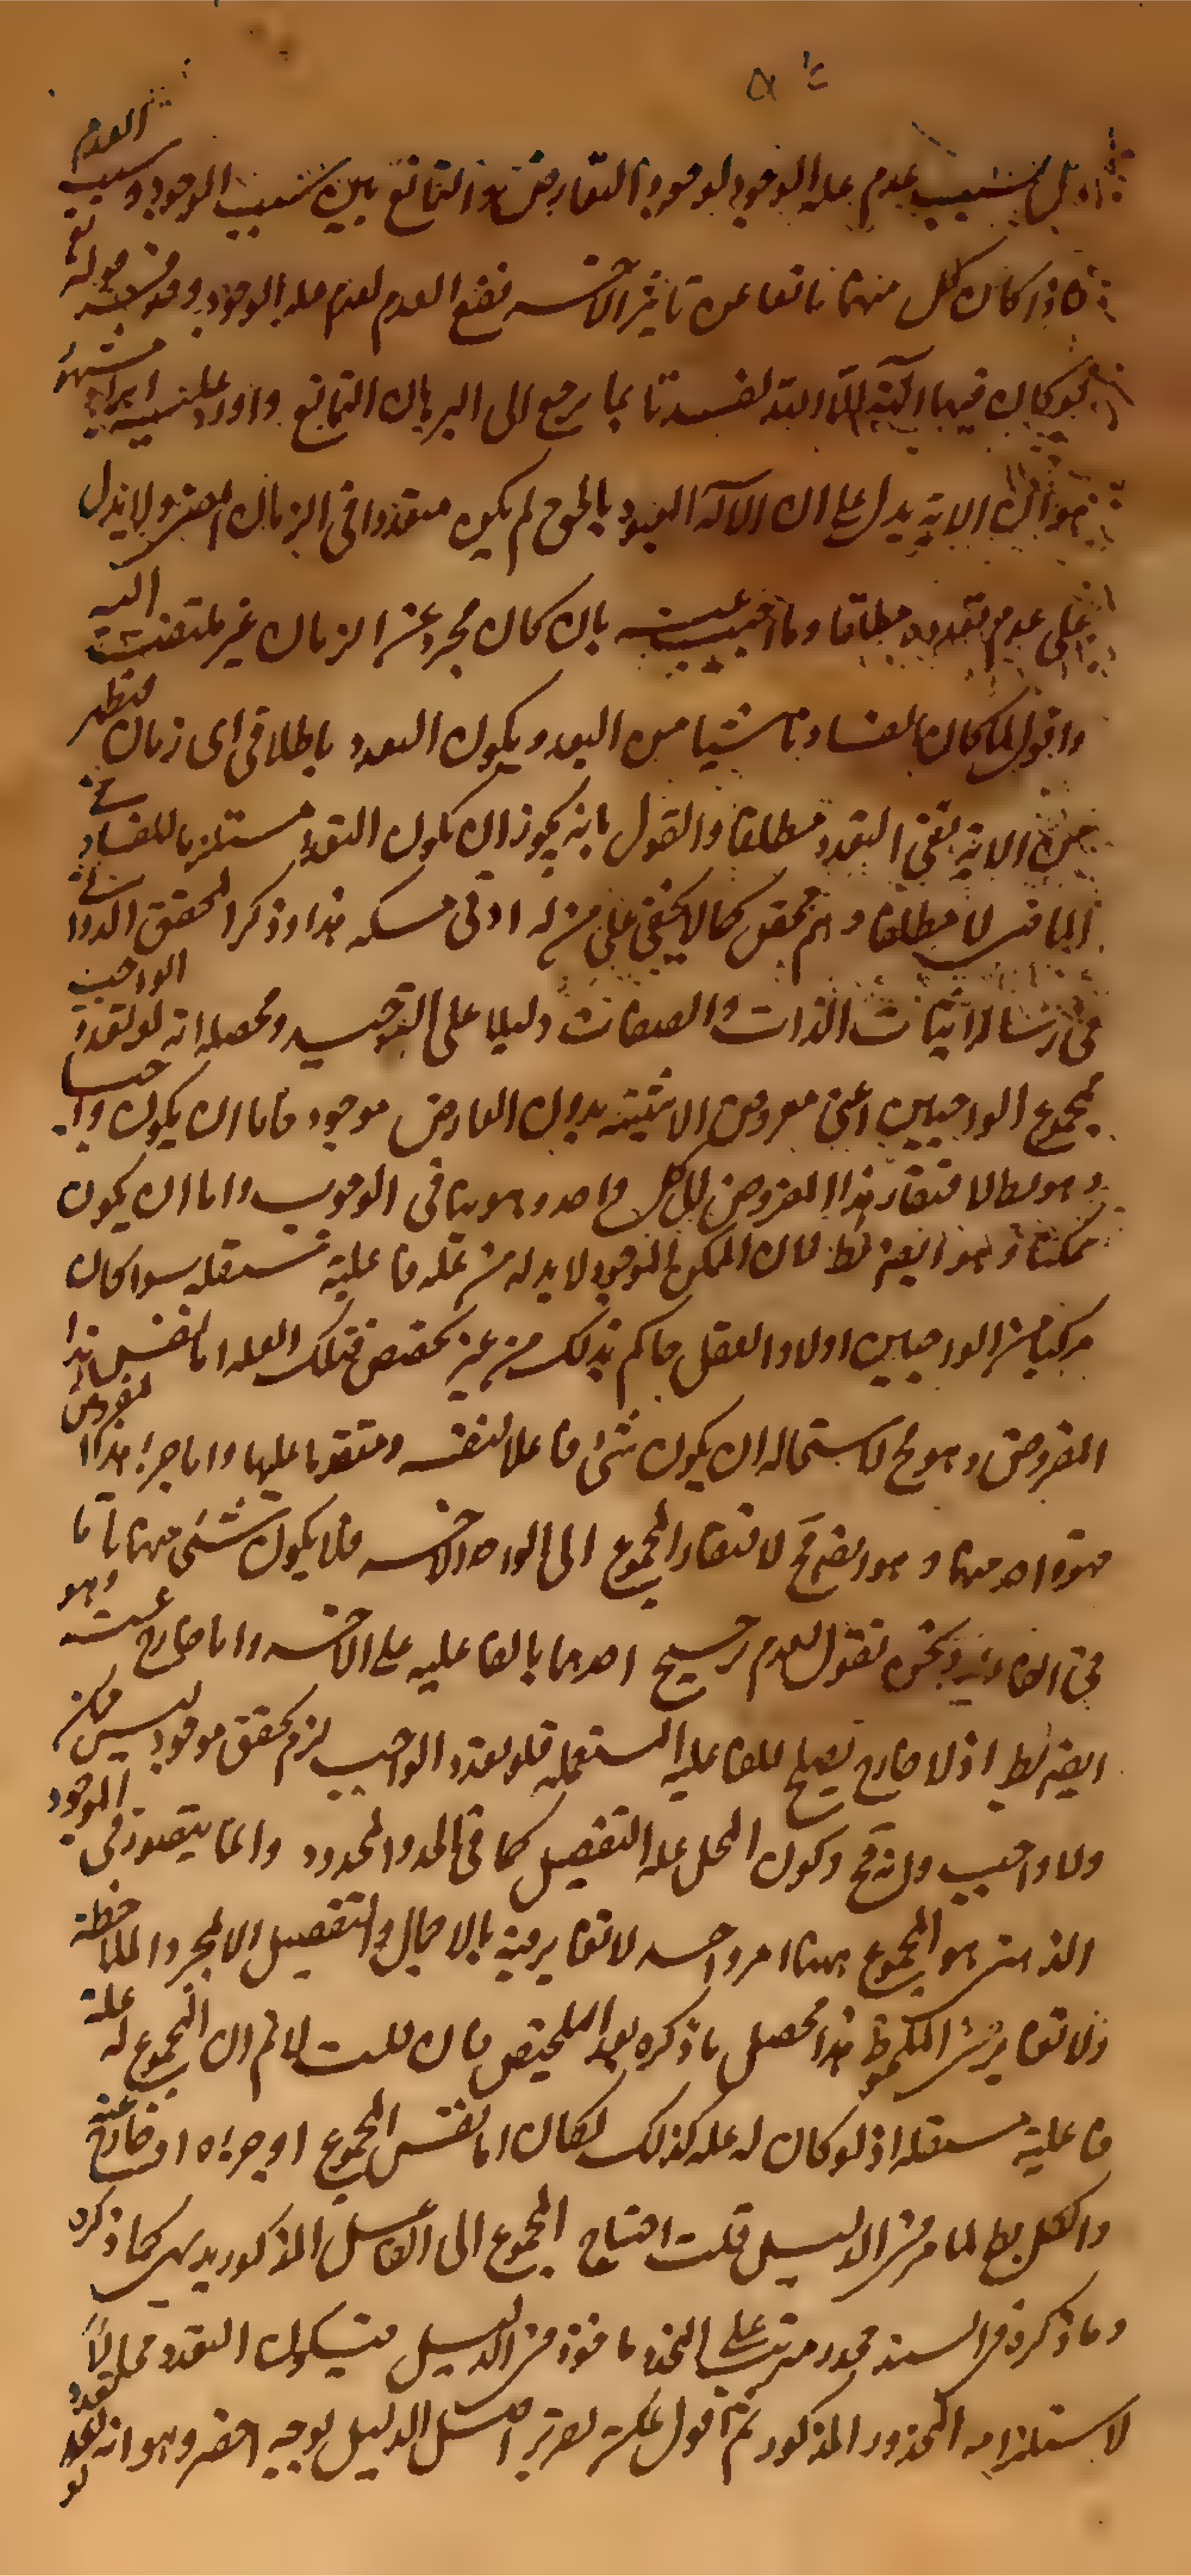 بل بسبب عدم عله الوجود لوجود التعارض والتمانع بين سبب الوجود وسبب العدم
فاذا كان كل منهما مانعا عن تاثير الاخر فيقع العدم لعدم عله الوجود وفى قوله تع
لو كان فيهما الهة الا الله لفسدتا بما يرجع الى البرهان التمانع واورد عليه ايراد مشهور
هو ان الاية يدل على ان الاله المعبود بالحق لم يكن متعددا فى الزمان الماضى ولا يدل
على عدم تعدده مطلقا وما اجيب عنه بان كان مجرد عن الزمان غير ملتفت اليه
واقول لما كان الفساد ناشيا من التعدد ويكون التعدد باطلا فى اى زمان فيظهر
من الاية نفى التعدد مطلقا والقول بانه يجوز ان يكون التعدد مستلزما للفساد فى
الماضى لا مطلقا وهم محض كما لا يخفى على من له ادنى مسكه هذا وذكر المحقق الدوانى
فى رسالة اثبات الذات والصفات دليلا على التوحيد ومحصله انه لو تعدد الواجب
لمجموع الواجبين اعنى معروض الاثنينيه بدون العارض موجود فاما ان يكون واجبا
وهو بط لافتقار هذا المفروض الى كل واحد وهو ينافى الوجوب واما ان يكون
ممكنا وهو ايضا بط لان الممكن الموجود لا بد له من عله فاعلية مستقله سوا كان
مركبا من الواجبين اولا والعقل حاكم بذلك من غير تخصيص فتلك العله اما نفس هذا
المفروض وهو مح لاستحاله ان يكون شئ فاعلا لنفسه ومتقدما عليها واما جزء هذا المفروض
فهو واحد منهما وهو ايضا مح لافتقار المجموع الى الواحد الاخر فلا يكون شئ منهما تاما
فى الفاعلية وبحث نقول لعدم ترجيح احدهما بالفاعليه على الاخر واما خارج عنه وهو
ايضا بط اذ لا خارج يصلح للفاعليه المستقله فلو تعدد الواجب لزم تحقق موجود ليس ممكن
ولا واجب وانه مح وكون المجمل عله التفصيل كما فى الحد والمحدود وانما يتصور فى الموجود
الذهنى هو المجموع ههنا امر واحد لا تغاير فيه بالاجمال والتفصيل الا بمجرد الملاحظه
ولا تغاير فى الملحوظ هذا محصل ما ذكره بعد التلخيص فان قلت لا نم ان المجموع له علة
فاعلية مستقله اذ لو كان له عله كذلك لكان اما نفس المجموع او جزءه او خارج عنه
والكل بط لما مر فى الدليل قلت احتياج المجموع الى الفاعل المذكور بديهى كما ذكره
وما ذكره فى السند محذور مترتب على المحذور ماخوذ فى الدليل فيكون التعدد محالاً
لاستلزامه المحذور المذكور ثم اقول يمكن تقرير اصل الدليل بوجه اخصر وهو انه لو تعدد